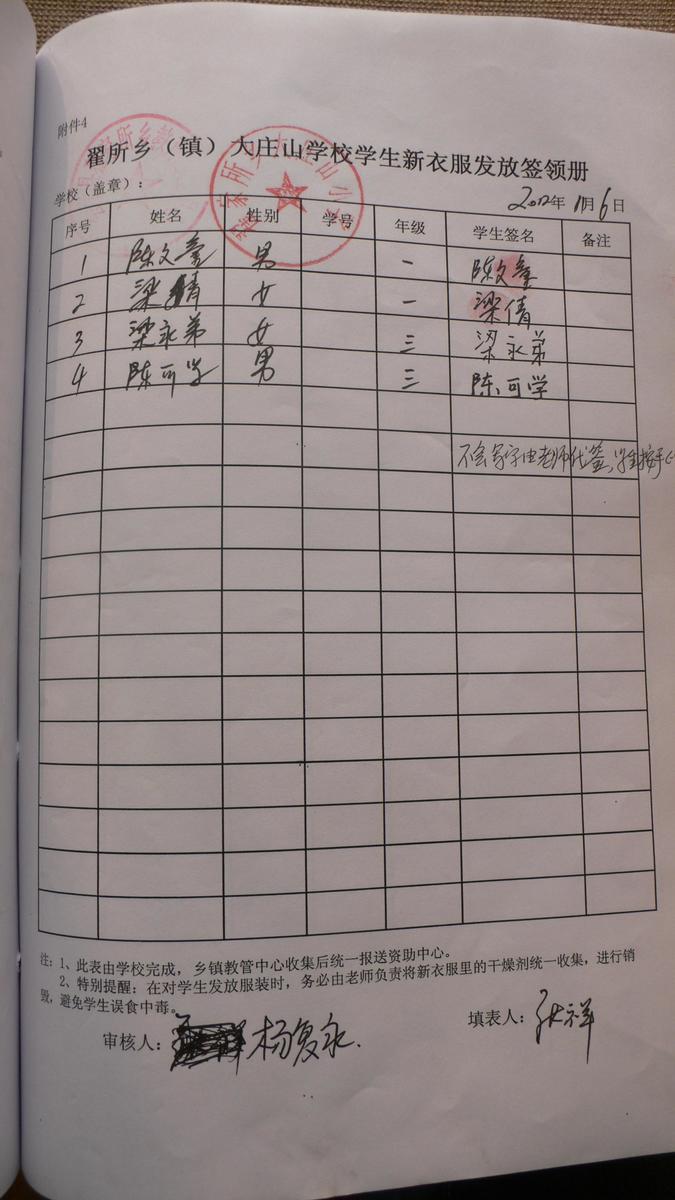 附件4
翟所乡（镇）大庄山学校学生新衣服发放签领册
学校（盖章）：
2012年 11月6日
序号 姓名 性别 学号 年级 学生签名 备注
1 陈文 男 一 陈文
2 梁倩 女 一 梁倩
3 梁永弟 女 三 梁永弟
4 陈可学 男 三 陈可学
不会写字由老师代签，学生按手
注：1、此表由学校完成，乡镇教管中心收集后统一报送资助中心。
2、特别提醒：在对学生发放服装时，务必由老师负责将新衣服里的干燥剂统一收集，进行销
毁，避免学生误食中毒。
审核人：杨复永
填表人：张祥